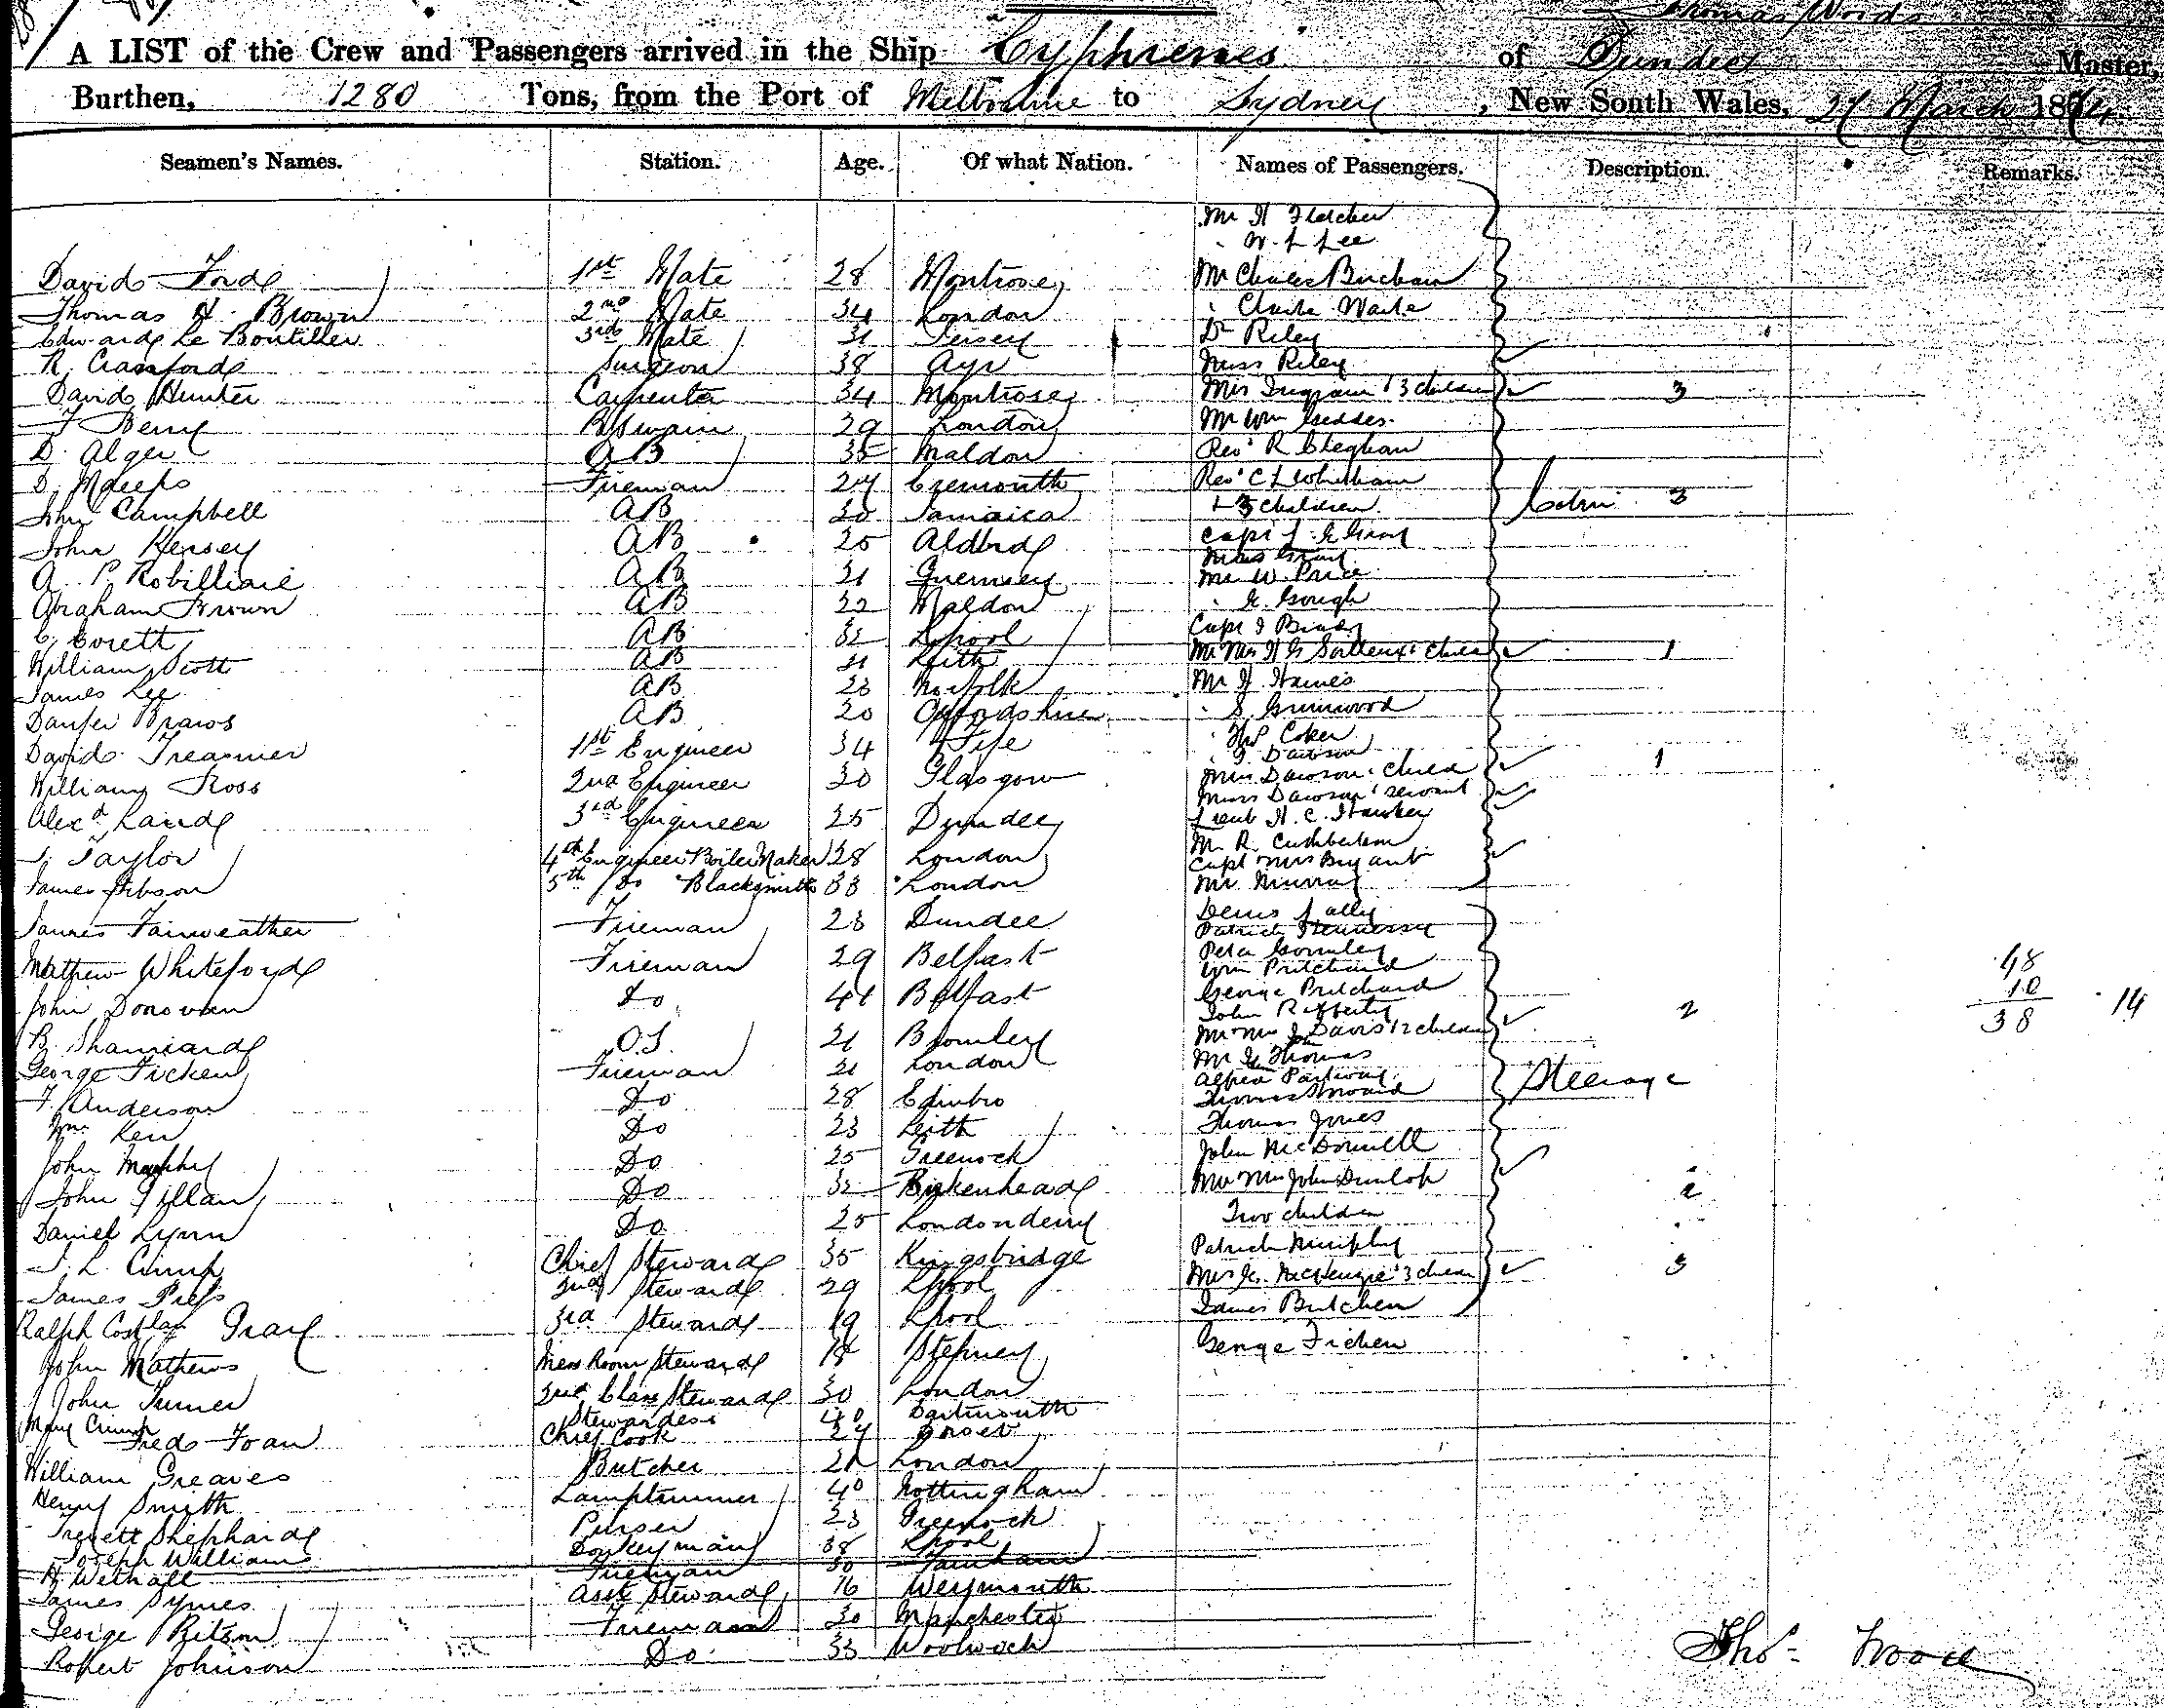 Thomas Wood
A LIST of the Crew and Passengers arrived in the Ship "Cyphrenes" of Dundee Master,
Burthen, 1280 Tons, from the Port of Melbourne to Sydney, New South Wales, March 1874
Seamen's Names. Station. Age. Of what Nation. Names of Passengers. Description. Remarks.
Mr H Fletcher
" W. L Lee
David Ford 1st Mate 28 Montrose Mr Charles Bircham
Thomas H. Brown 2nd Mate 34 London " Charles Waite
Edward Le Boutiller 3rd Mate 31 Jersey Dr Riley
R. Crawford Surgeon 38 Ayr Miss Riley
David Hunter Carpenter 34 Montrose Mrs Ingram & 3 children 3
F Berry BSwain 29 London Mr Wm Geddes
D. Alger AB 35 Maldon Revd R
D. Fireman 24 Rev C L Whitham
John Campbell AB 20 Jamaica + 3 children Cabin 3
John Kersey AB 25 Capt J. E Gray
A. P. Robilliard AB 21 Guernsey Mrs Gray
Mr W. Price
Abraham Brown AB 22 Maldon " G. Gough
C. Everett AB 32 Lpool Capt
William Scott AB 21 Leith Mr Mrs H G & child 1
James Lee AB 23 Norfolk Mr H Haines
AB 20 Oxfordshire " S Grimwood
" Coker
David Treasurer 1st Engineer 34 Fife " G Dawson
William Ross 2nd Engineer 30 Glasgow Mrs Dawson & child 1
Miss Dawson & servant
Alexr Laird 3rd Engineer 25 Dundee Lieut H. C. Hawker
J. Taylor 4th Engineer Boiler Maker 28 London Mr R. Cuthbertson
Capt Mrs Bryant
James Gibson 5th Do Blacksmith 33 London Mr Murray
James Fairweather Fireman 23 Dundee Denis Lally
Patrick Hennessy
Mathew Whiteford Fireman 29 Belfast Peter Gormley
Wm Pritchard
John Donovan Do 41 Belfast George Pritchard
John Rafferty
48
10
38 14
B. Shannard O.S. 21 Bromley Mr Mrs J Davis & 2 children 2
George Ficken Fireman 21 London Mr G Thomas
F. Anderson Do 28 Edinbro Alfred
Thomas Steerage
Wm Kerr Do 23 Leith Thomas Jones
John Murphy Do 25 Greenock John McDonnell
John Gillan Do 32 Birkenhead Mr Mrs John Dunlop 2
Daniel Lynn Do 25 Londonderry Two children
J. L. Crimp Chief Steward 35 Kingsbridge Patrick Murphy
James Press 2nd Steward 29 Lpool Mrs G. McKenzie & 3 children 3
Ralph Gray 3rd Steward 19 Lpool James Butcher
John Mathews Mess Room Steward 18 Stepney George Ficken
John Turner 2nd Class Steward 30 London
Mary Crimp Stewardess 40 Dartmouth
Fred Foan Chief Cook 24 Dorset
William Greaves Butcher 21 London
Henry Smyth Lamptrimmer 40 Nottingham
Trevett Shephard Purser 23 Greenock
Joseph Williams Donkeyman 38 Lpool
H. Wethall Fireman 30
James Symes Asst Steward 16 Weymouth
George Ritson Fireman 30 Manchester
Robert Johnson Do 33 Woolwich
Thos Wood